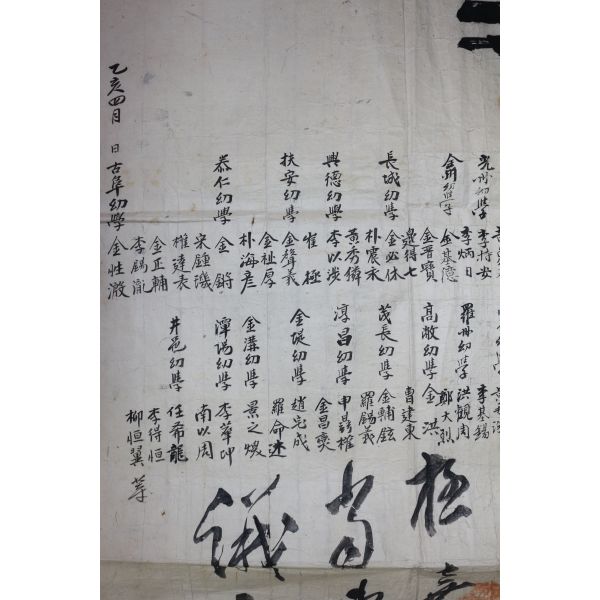 光州幼學
李時安
李炳日
金州幼學
金基億
金晋寶
邊得七
長城幼學
金必休
朴震永
黃秀儁
興德幼學
李以浚
崔極
扶安幼學
金聲義
金祉厚
朴海彦
泰仁幼學
金鏘
宋鍾璣
權達表
金正輔
李錫胤
乙亥四月 日古阜幼學 金性激
李基錫
羅州幼學
洪觀周
鄭大烈
高敞幼學 金洪
曹建東
茂長幼學
金輔鉉
羅錫義
淳昌幼學
申權
金昌奭
金堤幼學
趙完成
羅命述
金溝幼學
景之煥
潭陽幼學
李華坤
南以周
井邑幼學
任希龍
李得恒
柳恒翼 等
極
當
議